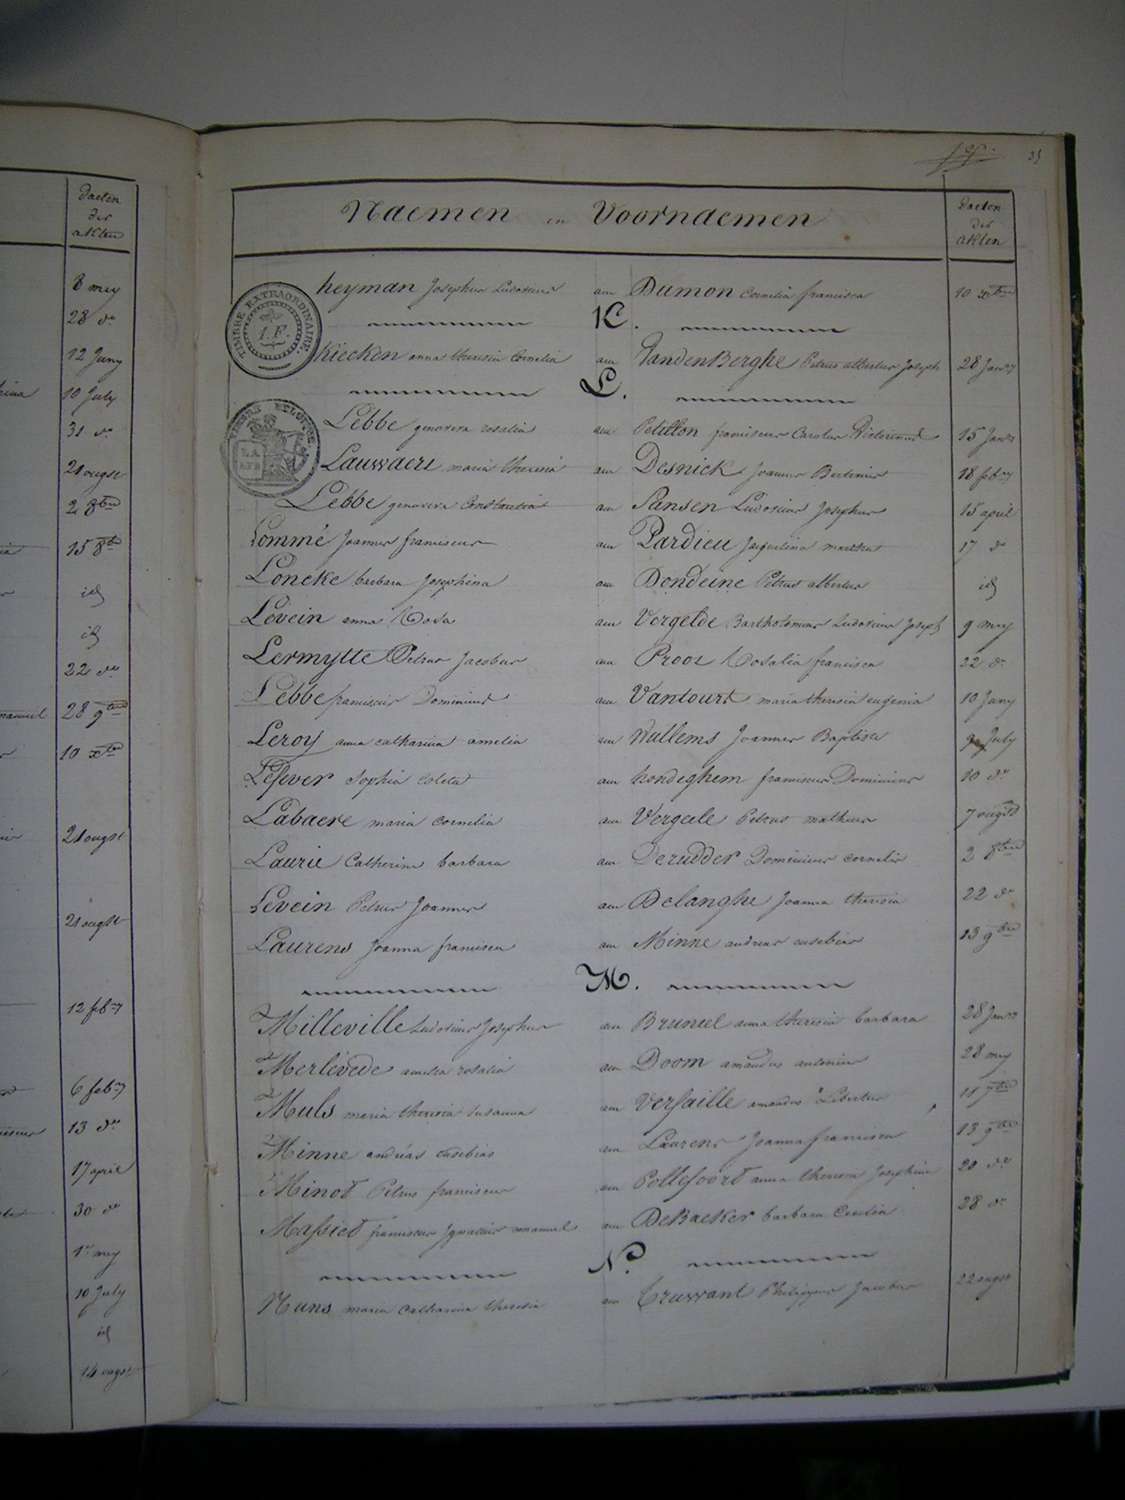 Daeten
der
akten
8 mey
28 do
12 Juny
10 July
31 do
21 ougst
2 8bre
15 8bre
id
id
22 do
28 9bre
10 xbre
21 ougst
21 ougst
12 feb.ry
6 feb.ry
13 do
17 april
30 do
1er mey
10 July
id
14 ougst
35
Naemen en Voornaemen
Daeten
der
akten
heyman Josephus Ludovicus aan Dumon Cornelia francisca 10 xbre
TIMBRE EXTRAORDINAIRE.
1.F.
K.
Kiecken anna theresia Cornelia aan VandenBerghe Petrus albertus Joseph 28 Jan.ry
L.
Lebbe genovera rosalia aan Petillon franciscus Carolus 15 Jan.ry
Lauwaert maria theresia aan Desnick Joannes Bertinus 18 feb.ry
Lebbe genovera Constantia aan Sansen Ludovicus Josephus 15 april
Lommé Joannes franciscus aan Pardieu Jacquelina 17 do
Loncke barbara Josephina aan Dondeine Petrus albertus id
Levein anna Rosa aan Vergelde Bartholomeus Ludovicus Joseph 9 mey
Lermytte Petrus Jacobus aan Proot Rosalia francisca 22 do
Lebbe franciscus Dominicus aan Vantourt maria theresia eugenia 10 Juny
Leroy anna catharina amelia aan Willems Joannes Baptiste July
Lefever Sophia Coleta aan hondeghem franciscus Dominicus 10 do
Labaere maria cornelia aan Vergeele Petrus matheus 7 ougst
Laurie Catherine barbara aan Derudder Dominicus cornelis 2 8bre
Levein Petrus Joannes aan Delanghe Joanna theresia 22 do
Laurens Joanna francisca aan Minne andreas eusebius 13 9bre
M.
Milleville Ludovicus Josephus aan Bruneel anna theresia barbara 28 Jan.ry
Merlevede amelia rosalia aan Doom amandus antonius 28 mey
Muls maria theresia Susanna aan Versaille amandus Libertus 11 7bre
Minne andréas Eusebius aan Laurens Joanna francisca 13 9bre
Minot Petrus franciscus aan Pollefoort anna theresia Josephine 20 do
Massiet franciscus Ignatius emanuel aan DeBaeker barbara Cecilia 28 do
N.
Nuns maria Catharina theresia aan Cruwant Philippus Jacobus 22 ougst